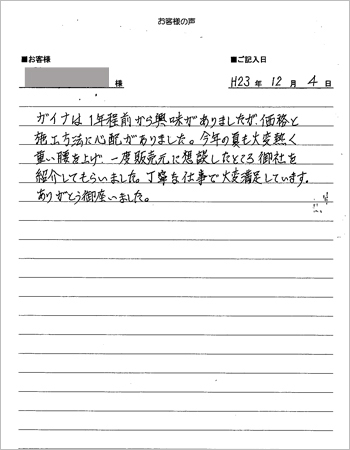 お客様の声
■お客様
■ご記入日
様
H23 年 12 月 4 日
ガイナは1年程前から興味がありましたが、価格と
施工方法に心配がありました。今年の夏も大変熱く
重い腰を上げ一度販売元に相談したところ御社を
紹介してもらいました。丁寧な仕事で大変満足しています。
ありがとう御座いました。